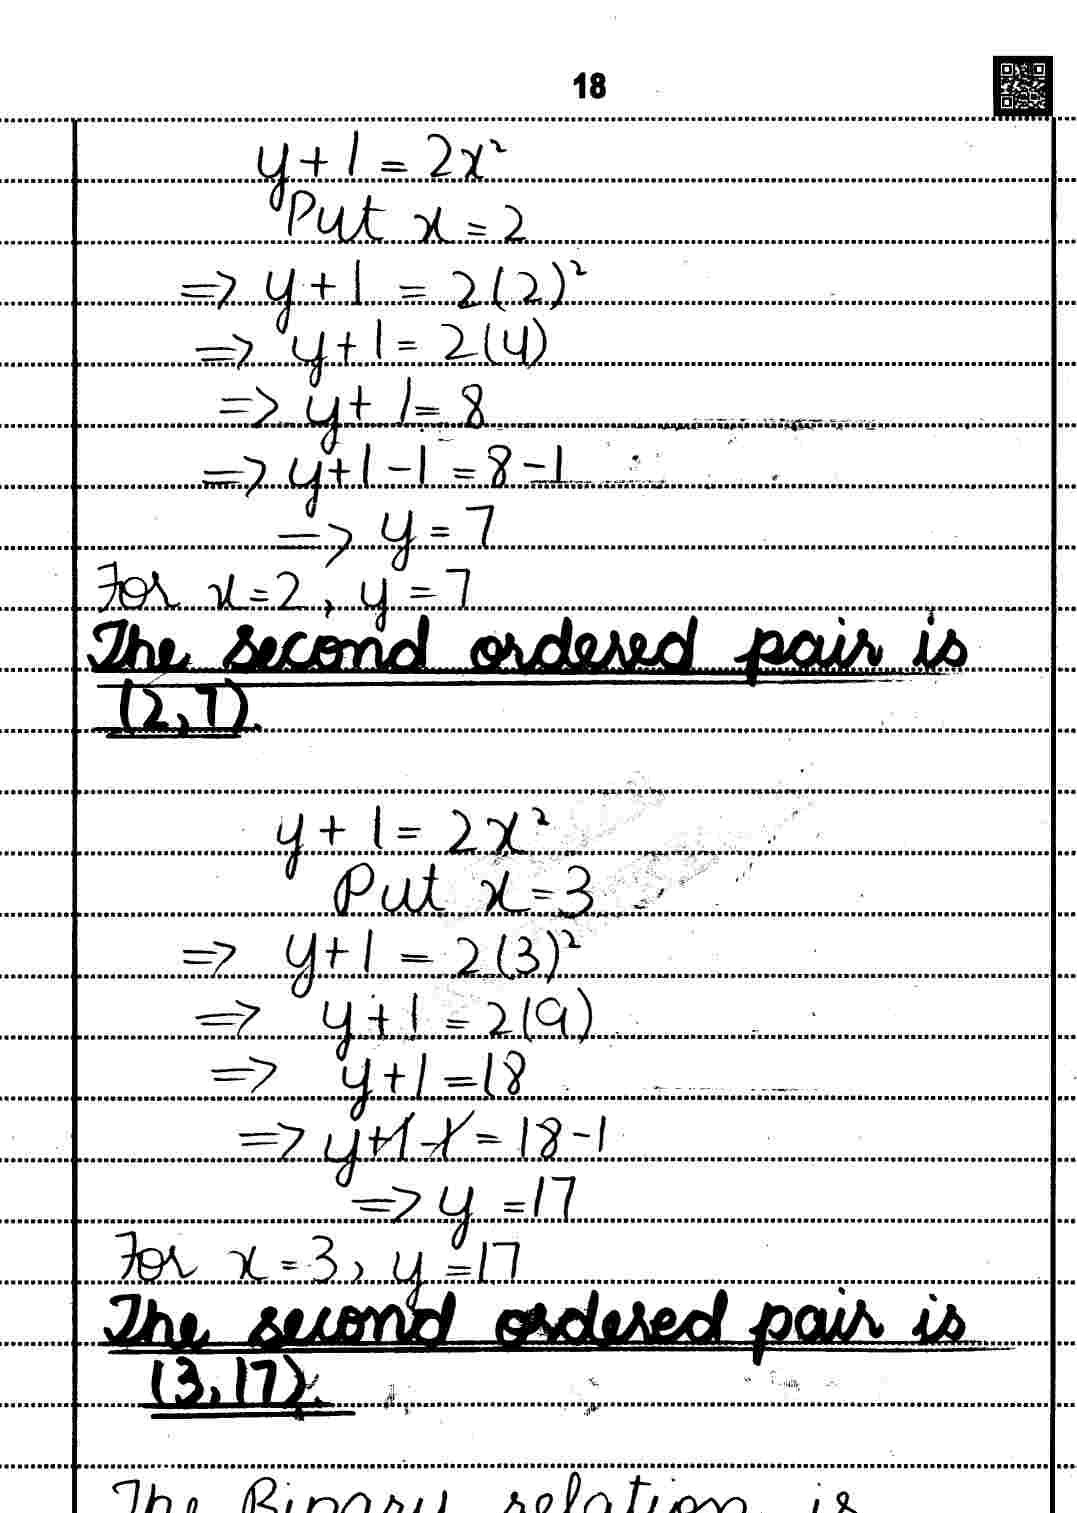 18
y+1 = 2x²
Put x=2
=> y+1 = 2(2)²
=> y+1 = 2(4)
=> y+1 = 8
=> y+1-1 = 8-1
=> y = 7
For x=2, y=7
The second ordered pair is
(2,7).
y+1 = 2x²
Put x=3
=> y+1 = 2(3)²
=> y+1 = 2(9)
=> y+1 = 18
=> y+1-1 = 18-1
=> y = 17
For x=3, y=17
The second ordered pair is
(3,17).
The Binary relation is